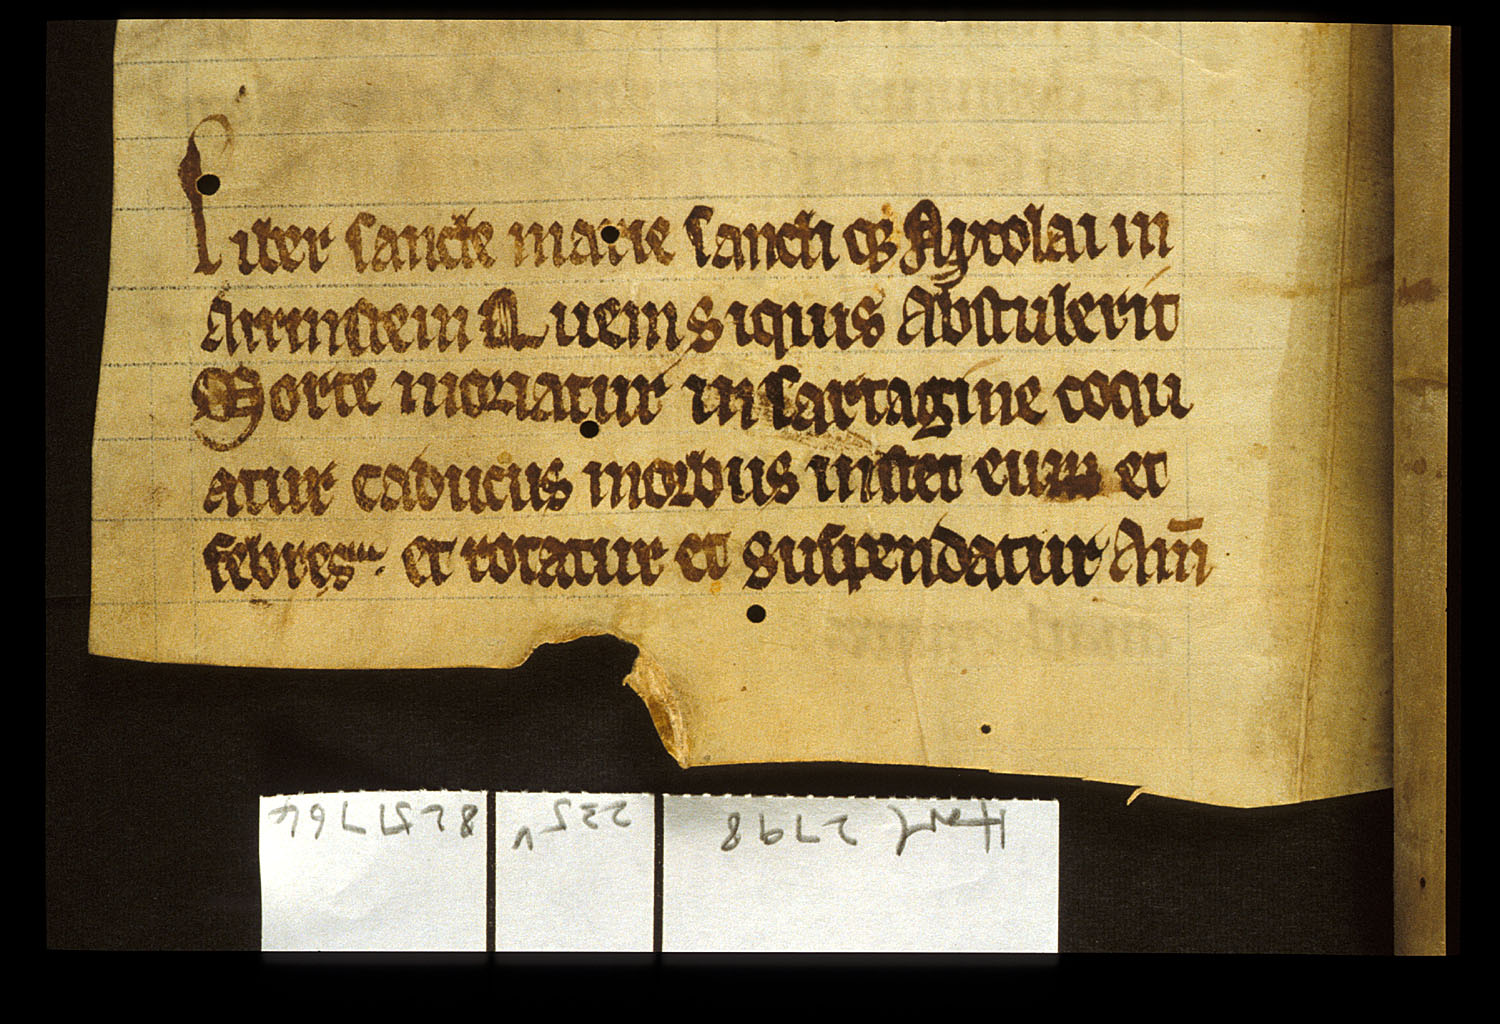 Liber sancte marie sancti qꝫ Nycolai in
Arrinstein Quem siquis abstulerit
Morte moriatur in sartagine coqu
atur caducus morbus instet eum et
febres. et rotatur et suspendatur Am̅
Harl 2798
235v